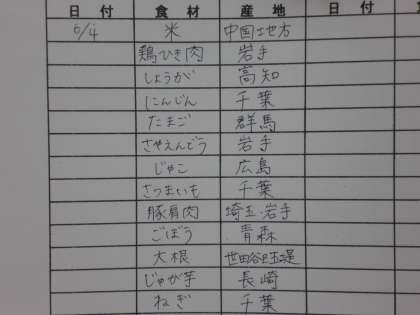 日付 食材 産地 日付
6/4 米 中国地方
鶏ひき肉 岩手
しょうが 高知
にんじん 千葉
たまご 群馬
さやえんどう 岩手
じゃこ 広島
さつまいも 千葉
豚肩肉 埼玉・岩手
ごぼう 青森
大根 世田谷区玉堤
じゃが芋 長崎
ねぎ 千葉